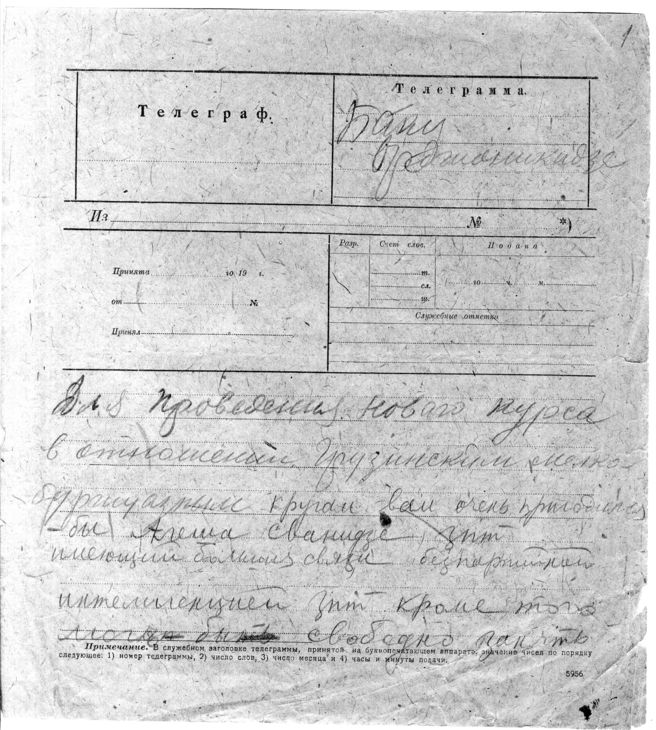 1
Телеграф.
Телеграмма.
Баку
Орджоникидзе
Из № *)
Разр. Счет слов. Подана
Принята го 19 г.
т.
го ч. м.
сл.
от №
ш.
Служебные отметки
Принял
Для проведения нового курса
в отношении грузинским мелко-
буржуазным кругам вам очень пригодился
-бы Алеша Сванидзе зпт
имеющий большия связи безпартийной
интеллигенцией зпт кроме того
свободно
Примечание. В служебном заголовке телеграммы, принятой на буквопечатающем аппарате, значение чисел по порядку
следующее: 1) номер телеграммы, 2) число слов, 3) число месяца и 4) часы и минуты подачи.
5956